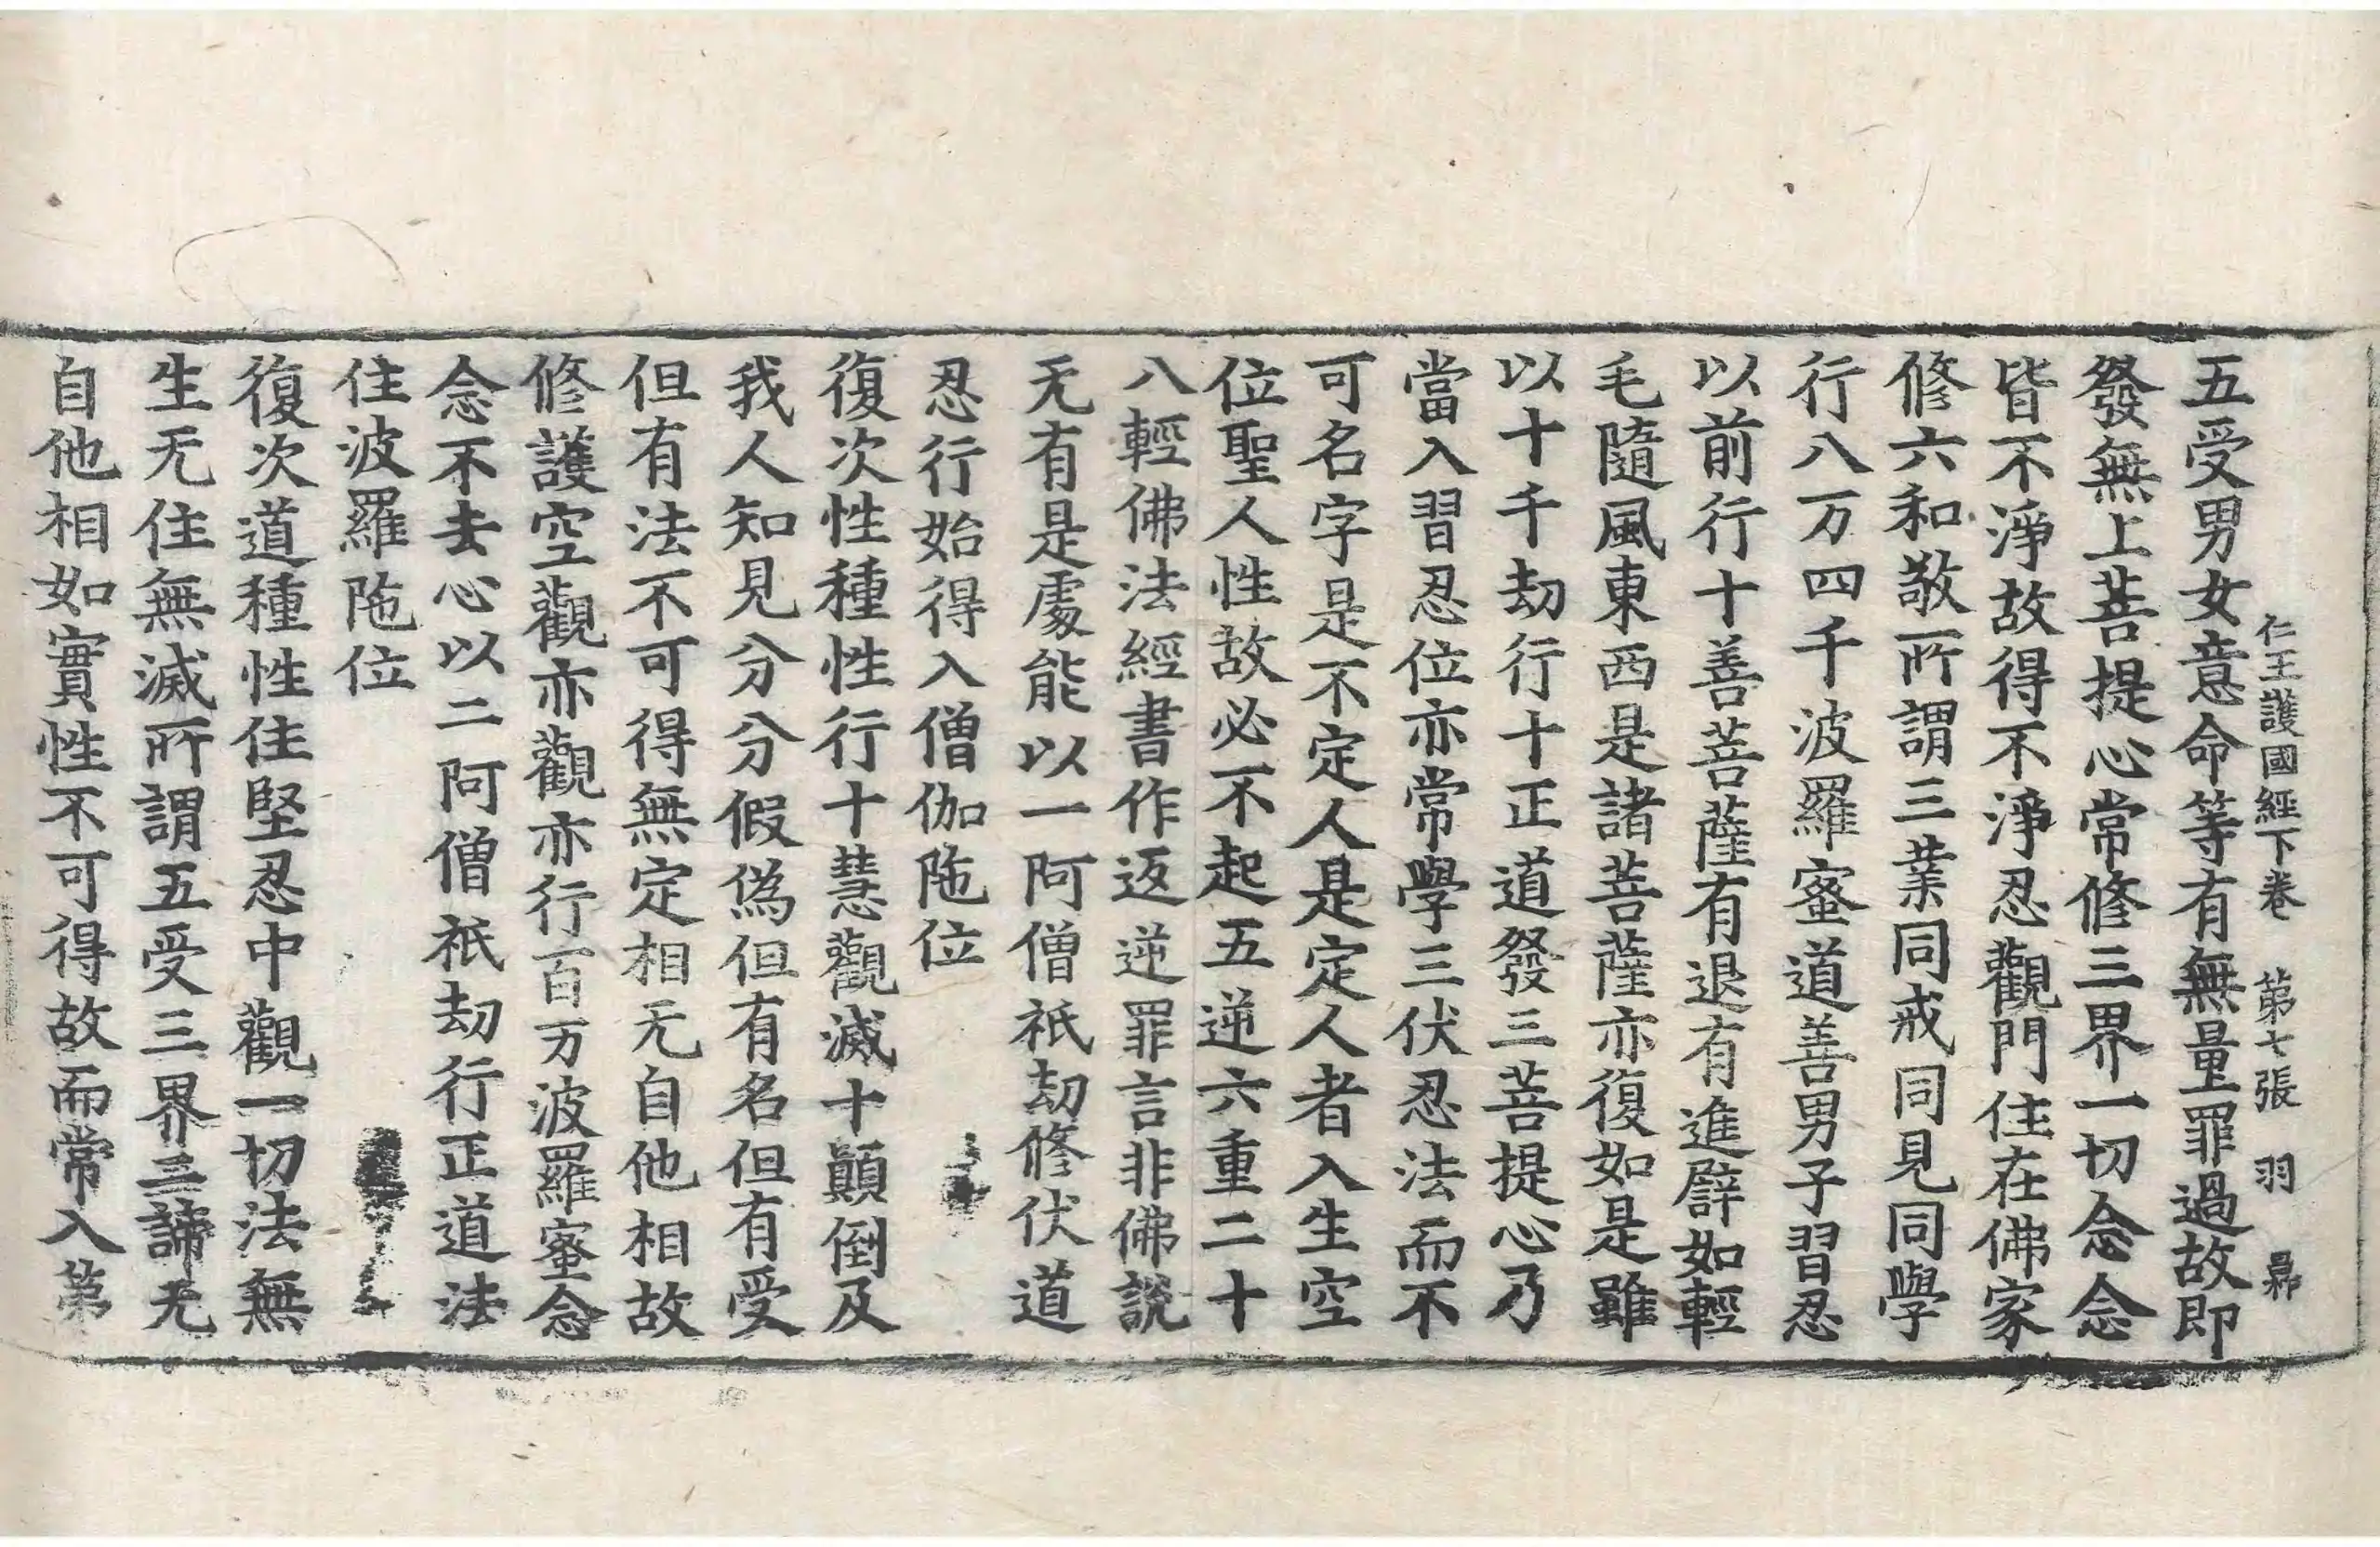 仁王護國經下卷 第七張 羽
五受男女意命等有無量罪過故即
發無上菩提心常修三界一切念念
皆不淨故得不淨忍觀門住在佛家
修六和敬所謂三業同戒同見同學
行八万四千波羅蜜道善男子習忍
以前行十善菩薩有退有進譬如輕
毛隨風東西是諸菩薩亦復如是雖
以十千劫行十正道發三菩提心乃
當入習忍位亦常學三伏忍法而不
可名字是不定人是定人者入生空
位聖人性故必不起五逆六重二十
八輕佛法經書作返逆罪言非佛說
无有是處能以一阿僧祇劫修伏道
忍行始得入僧伽陁位
復次性種性行十慧觀滅十顛倒及
我人知見分分假偽但有名但有受
但有法不可得無定相无自他相故
修護空觀亦觀亦行百万波羅蜜念
念不去心以二阿僧祇劫行正道法
住波羅陁位
復次道種性住堅忍中觀一切法無
生无住無滅所謂五受三界三諦无
自他相如實性不可得故而常入第